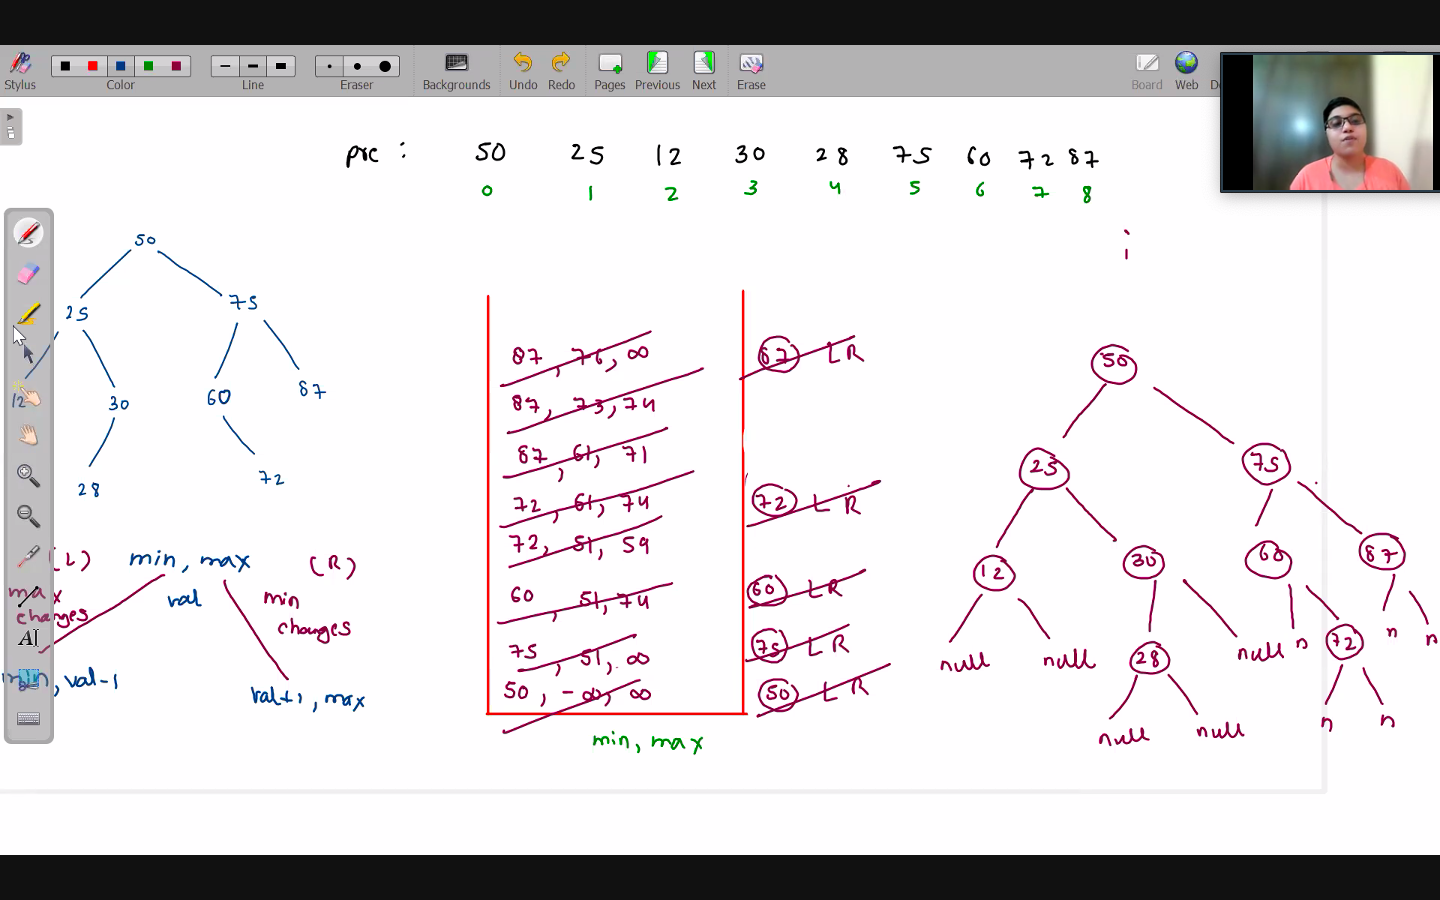 Stylus Color Line Eraser Backgrounds Undo Redo Pages Previous Next Erase Board Web
pre : 50 25 12 30 28 75 60 72 87
0 1 2 3 4 5 6 7 8
i
50
25 75
12 30 60 87
28 72
(L) min, max (R)
max changes val min changes
min, val-1 val+1, max
87, 76, ∞ 87 L R
87, 73, 74
87, 61, 71
72, 61, 74 72 L R
72, 51, 59
60, 51, 74 60 L R
75, 51, ∞ 75 L R
50, -∞, ∞ 50 L R
min, max
50
25 75
12 30 60 87
null null 28 null n 72 n n
null null n n
AI